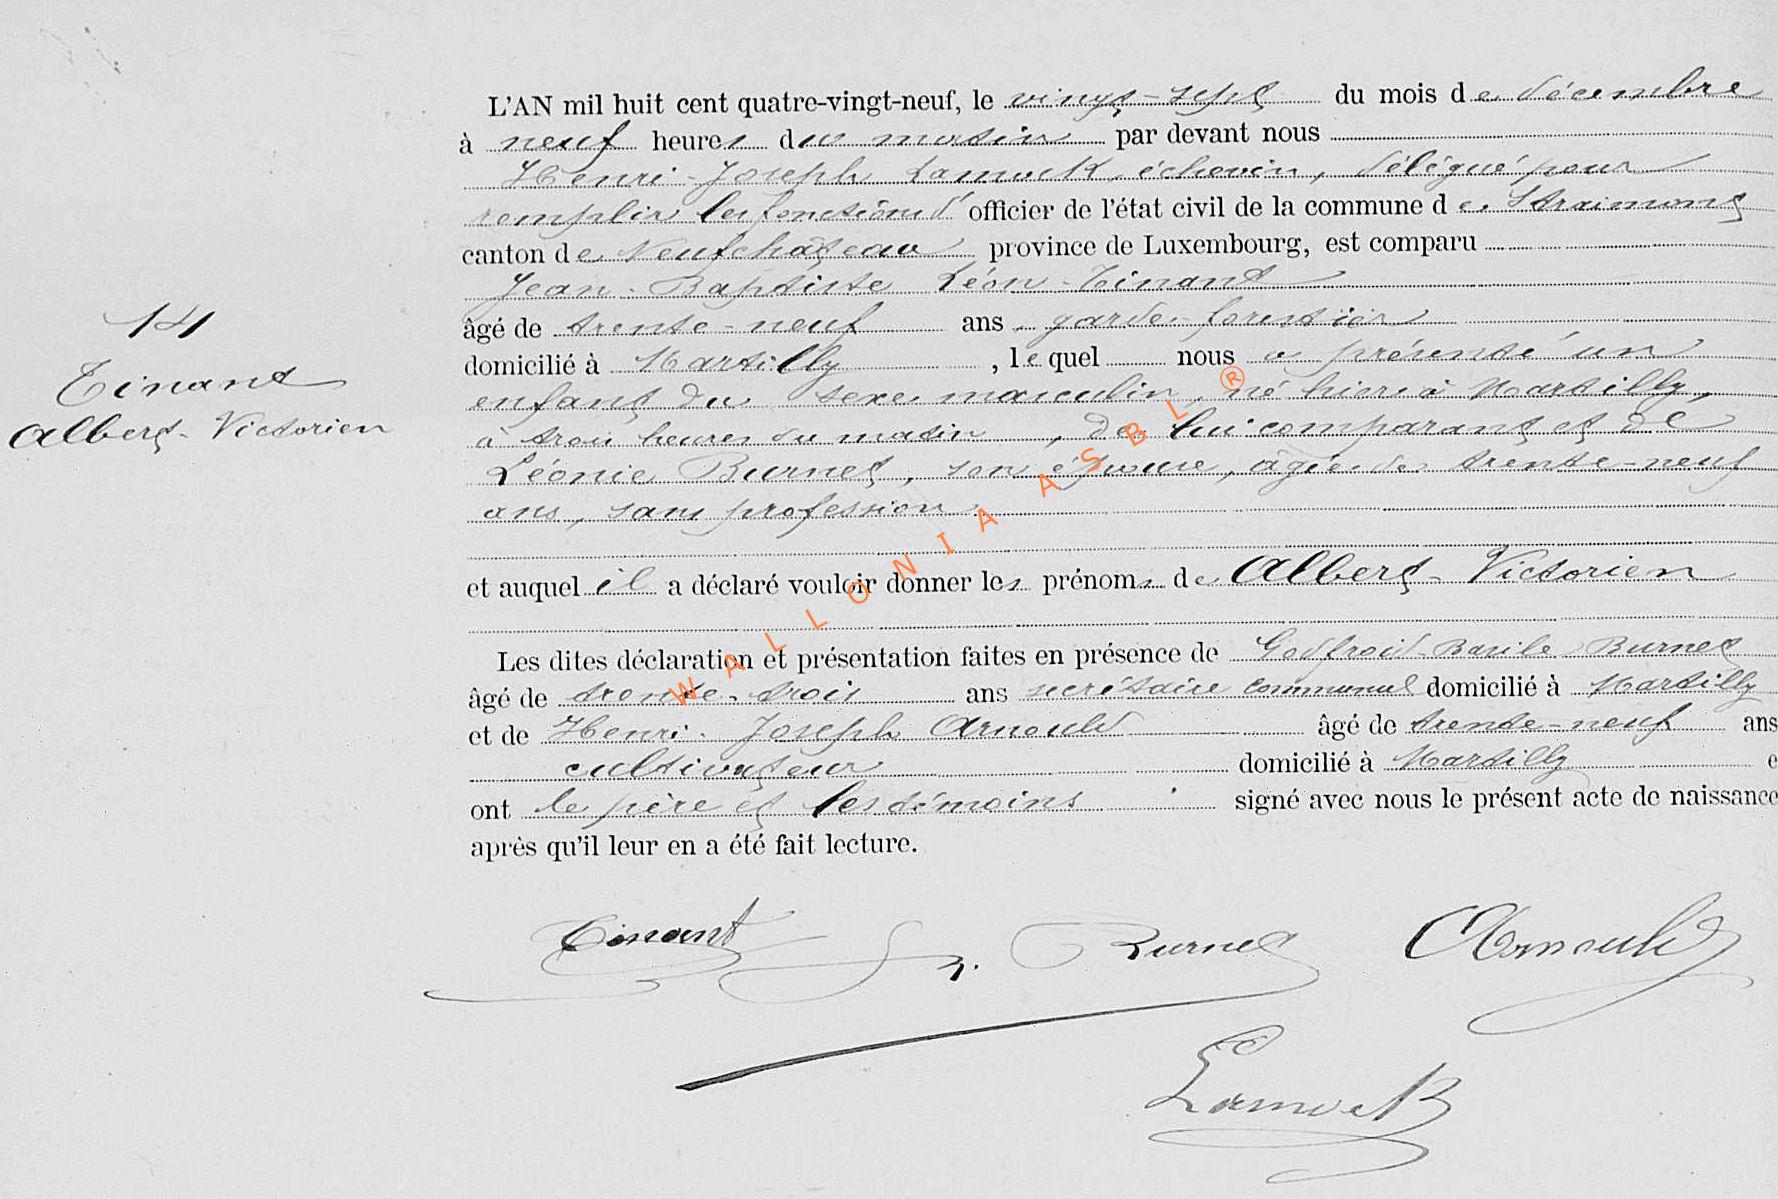 L'AN mil huit cent quatre-vingt-neuf, le vingt-sept du mois de décembre
à neuf heures du matin par devant nous
Henri-Joseph Lamock, échevin, délégué pour
remplir les fonctions d'officier de l'état civil de la commune de Straimont
canton de Neufchâteau province de Luxembourg, est comparu
Jean-Baptiste Léon Tinant
âgé de trente-neuf ans, garde-forestier
14
domicilié à Martilly, lequel nous a présenté un
Tinant
enfant du sexe masculin, né hier à Martilly,
Albert-Victorien
à trois heures du matin, de lui comparant et de
Léonie Burnet, son épouse, âgée de trente-neuf
ans, sans profession
et auquel il a déclaré vouloir donner les prénoms de Albert-Victorien
Les dites déclaration et présentation faites en présence de Godfroid-Basile Burnet
âgé de trente-trois ans secrétaire communal domicilié à Martilly
et de Henri-Joseph Arnould âgé de trente-neuf ans
cultivateur domicilié à Martilly e
ont le père et les témoins signé avec nous le présent acte de naissance
après qu'il leur en a été fait lecture.
Tinant Burnet Arnould
WALLONIA ASBL®